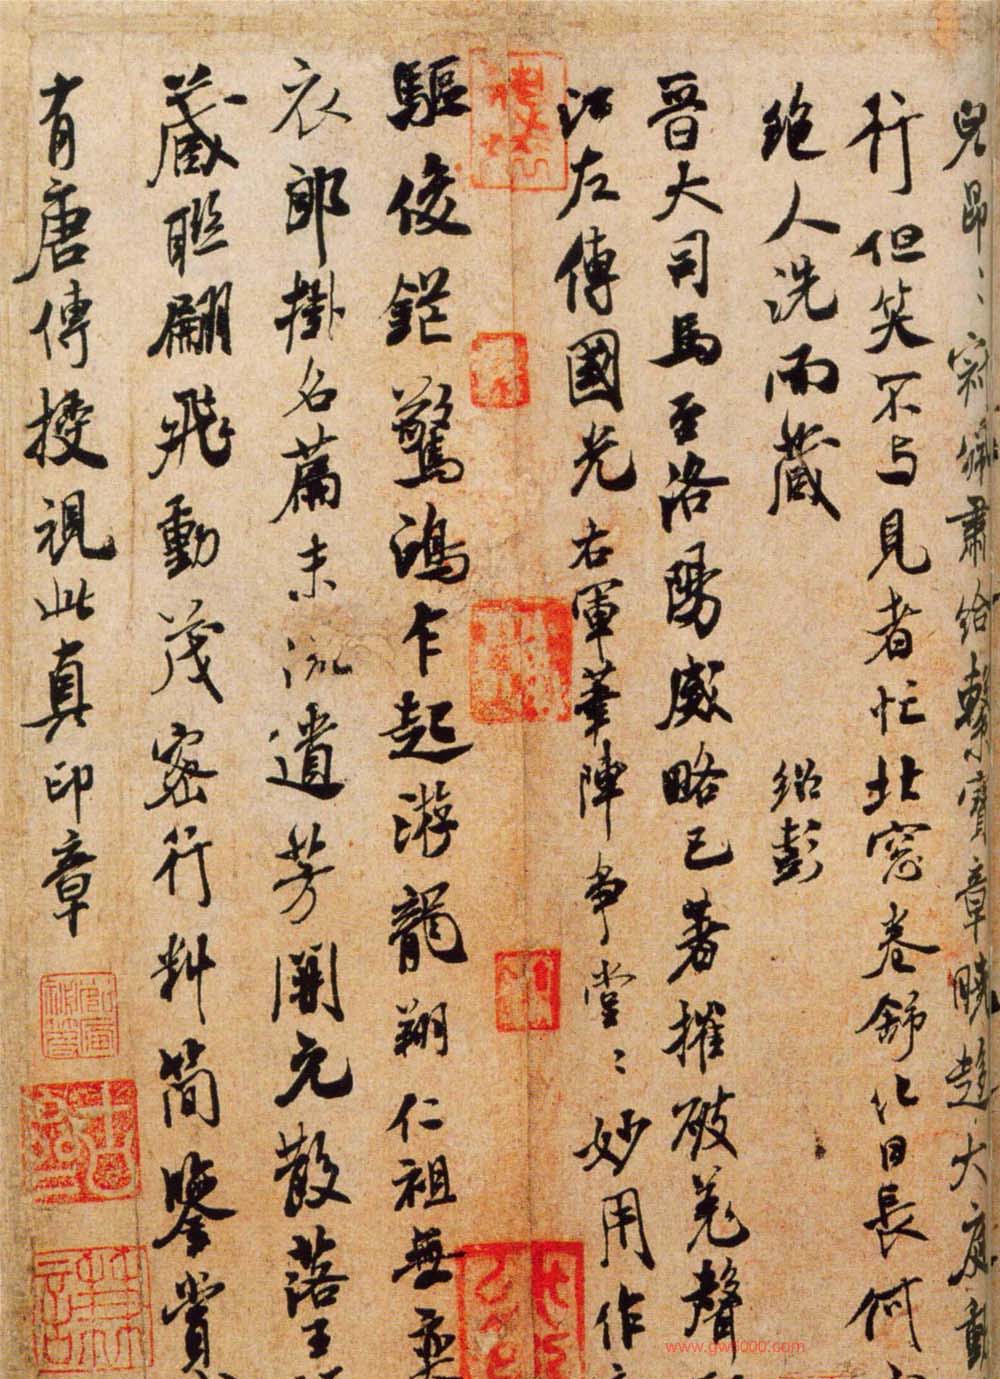 兒昂〻 肅給繫寶章曉趨大庭
行但笑不与見者忙北窓卷舒化日長何
绝人洗而蔵
绍彭
晉大司馬至洛陽威略已著摧破羌聲
江左傳國光右軍筆陣爭堂〻妙用作
驅俊鋩驚鴻乍起游龍翔仁祖無
衣郎掛名篇末流遺芳開元散落
蔵聮翩飛動茂密行料簡鑒賞
有唐傳授視此真印章
www.gw8000.com